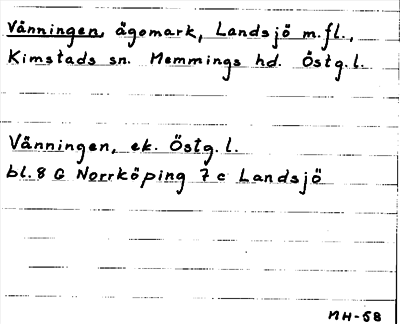 Vänningen, ägomark, Landsjö m.fl.,
Kimstads sn. Memmings hd. Östg.l.
Vänningen, ek. Östg.l.
bl.8 G Norrköping 7 c Landsjö
MH-58